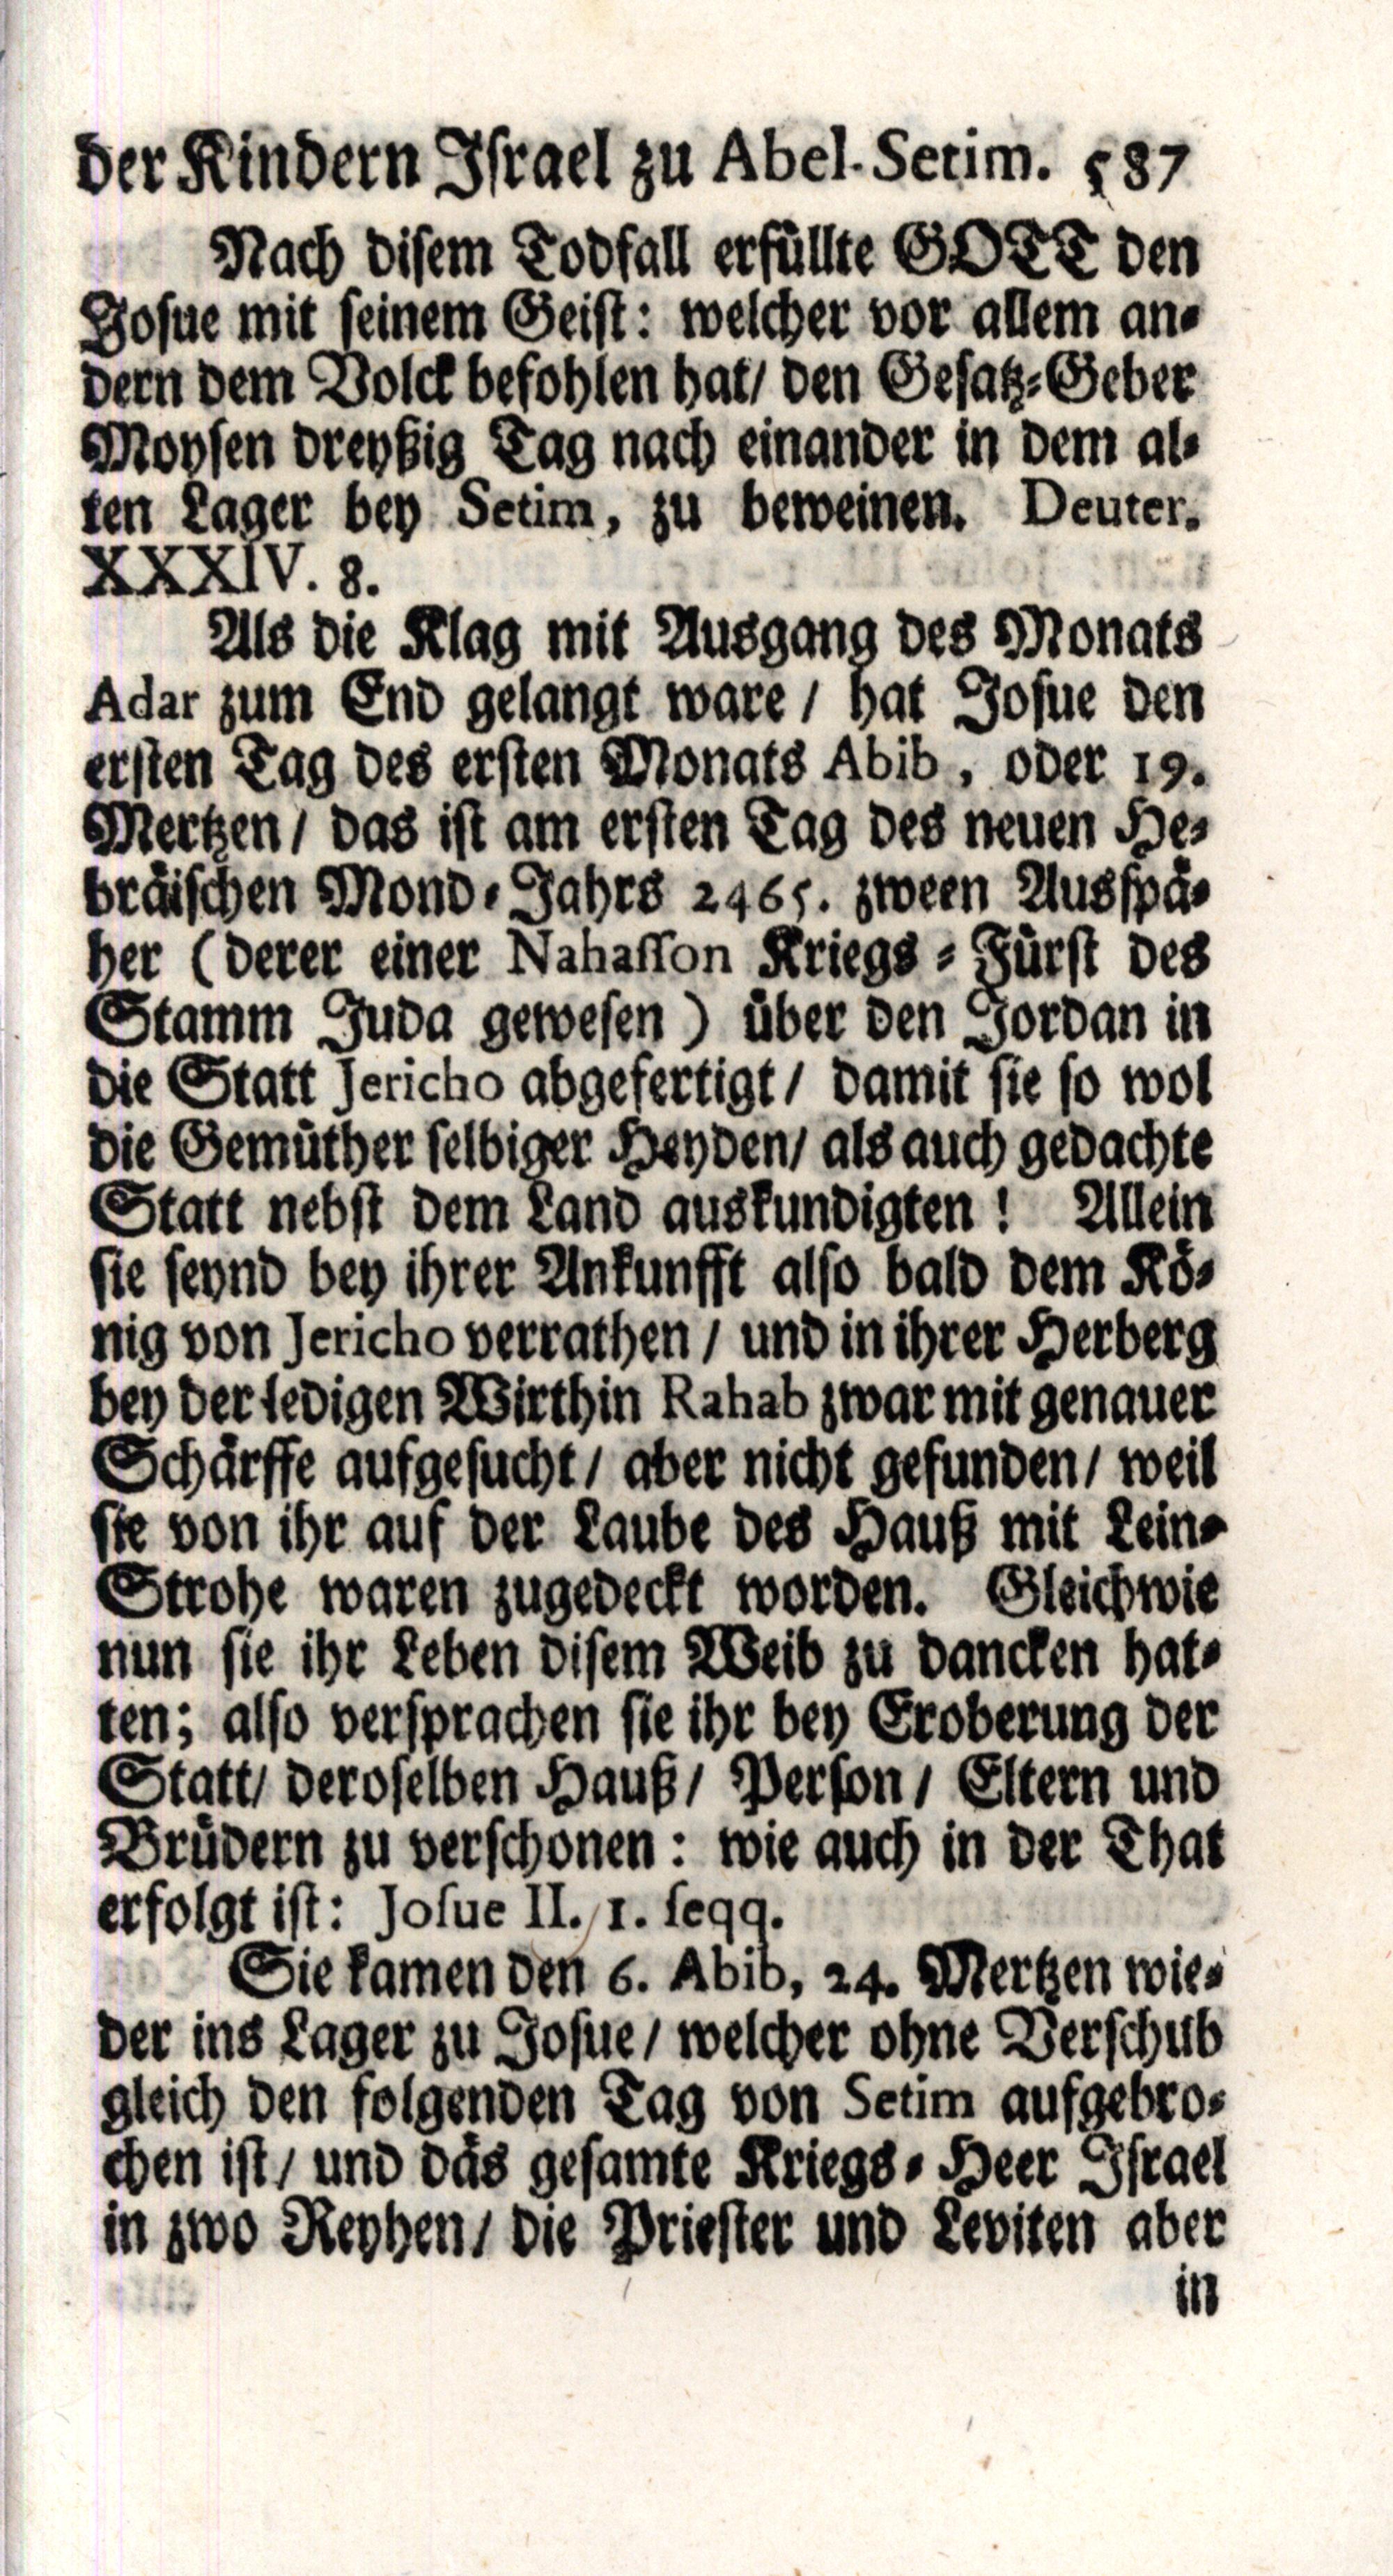 der Kindern Israel zu Abel-Setim. 587
Nach disem Todfall erfüllte GOTT den
Josue mit seinem Geist: welcher vor allem an-
dern dem Volck befohlen hat/ den Gesatz-Geber
Moysen dreyßig Tag nach einander in dem al-
ten Lager bey Setim, zu beweinen. Deuter.
XXXIV. 8.
Als die Klag mit Ausgang des Monats
Adar zum End gelangt ware / hat Josue den
ersten Tag des ersten Monats Abib, oder 19.
Mertzen / das ist am ersten Tag des neuen He-
bräischen Mond-Jahrs 2465. zween Ausspä-
her (derer einer Nahasson Kriegs-Fürst des
Stamm Juda gewesen) über den Jordan in
die Statt Jericho abgefertigt / damit sie so wol
die Gemüther selbiger Heyden/ als auch gedachte
Statt nebst dem Land auskundigten! Allein
sie seynd bey ihrer Ankunfft also bald dem Kö-
nig von Jericho verrathen / und in ihrer Herberg
bey der ledigen Wirthin Rahab zwar mit genauer
Schärffe aufgesucht / aber nicht gefunden / weil
sie von ihr auf der Laube des Hauß mit Lein-
Strohe waren zugedeckt worden. Gleichwie
nun sie ihr Leben disem Weib zu dancken hat-
ten; also versprachen sie ihr bey Eroberung der
Statt/ deroselben Hauß / Person / Eltern und
Brüdern zu verschonen: wie auch in der That
erfolgt ist: Josue II. 1. seqq.
Sie kamen den 6. Abib, 24. Mertzen wie-
der ins Lager zu Josue / welcher ohne Verschub
gleich den folgenden Tag von Setim aufgebro-
chen ist / und das gesamte Kriegs-Heer Israel
in zwo Reyhen / die Priester und Leviten aber
in